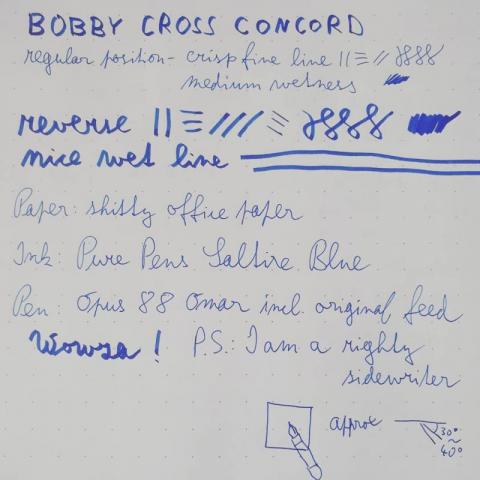 BOBBY CROSS CONCORD
regular position - crisp fine line
medium wetness
reverse
nice wet line
Paper: shitty office paper
Ink: Pure Pens Saltire Blue
Pen: Opus 88 Omar incl. original feed
Wowza! P.S.: I am a righty
sidewriter
approx 30°
~
40°